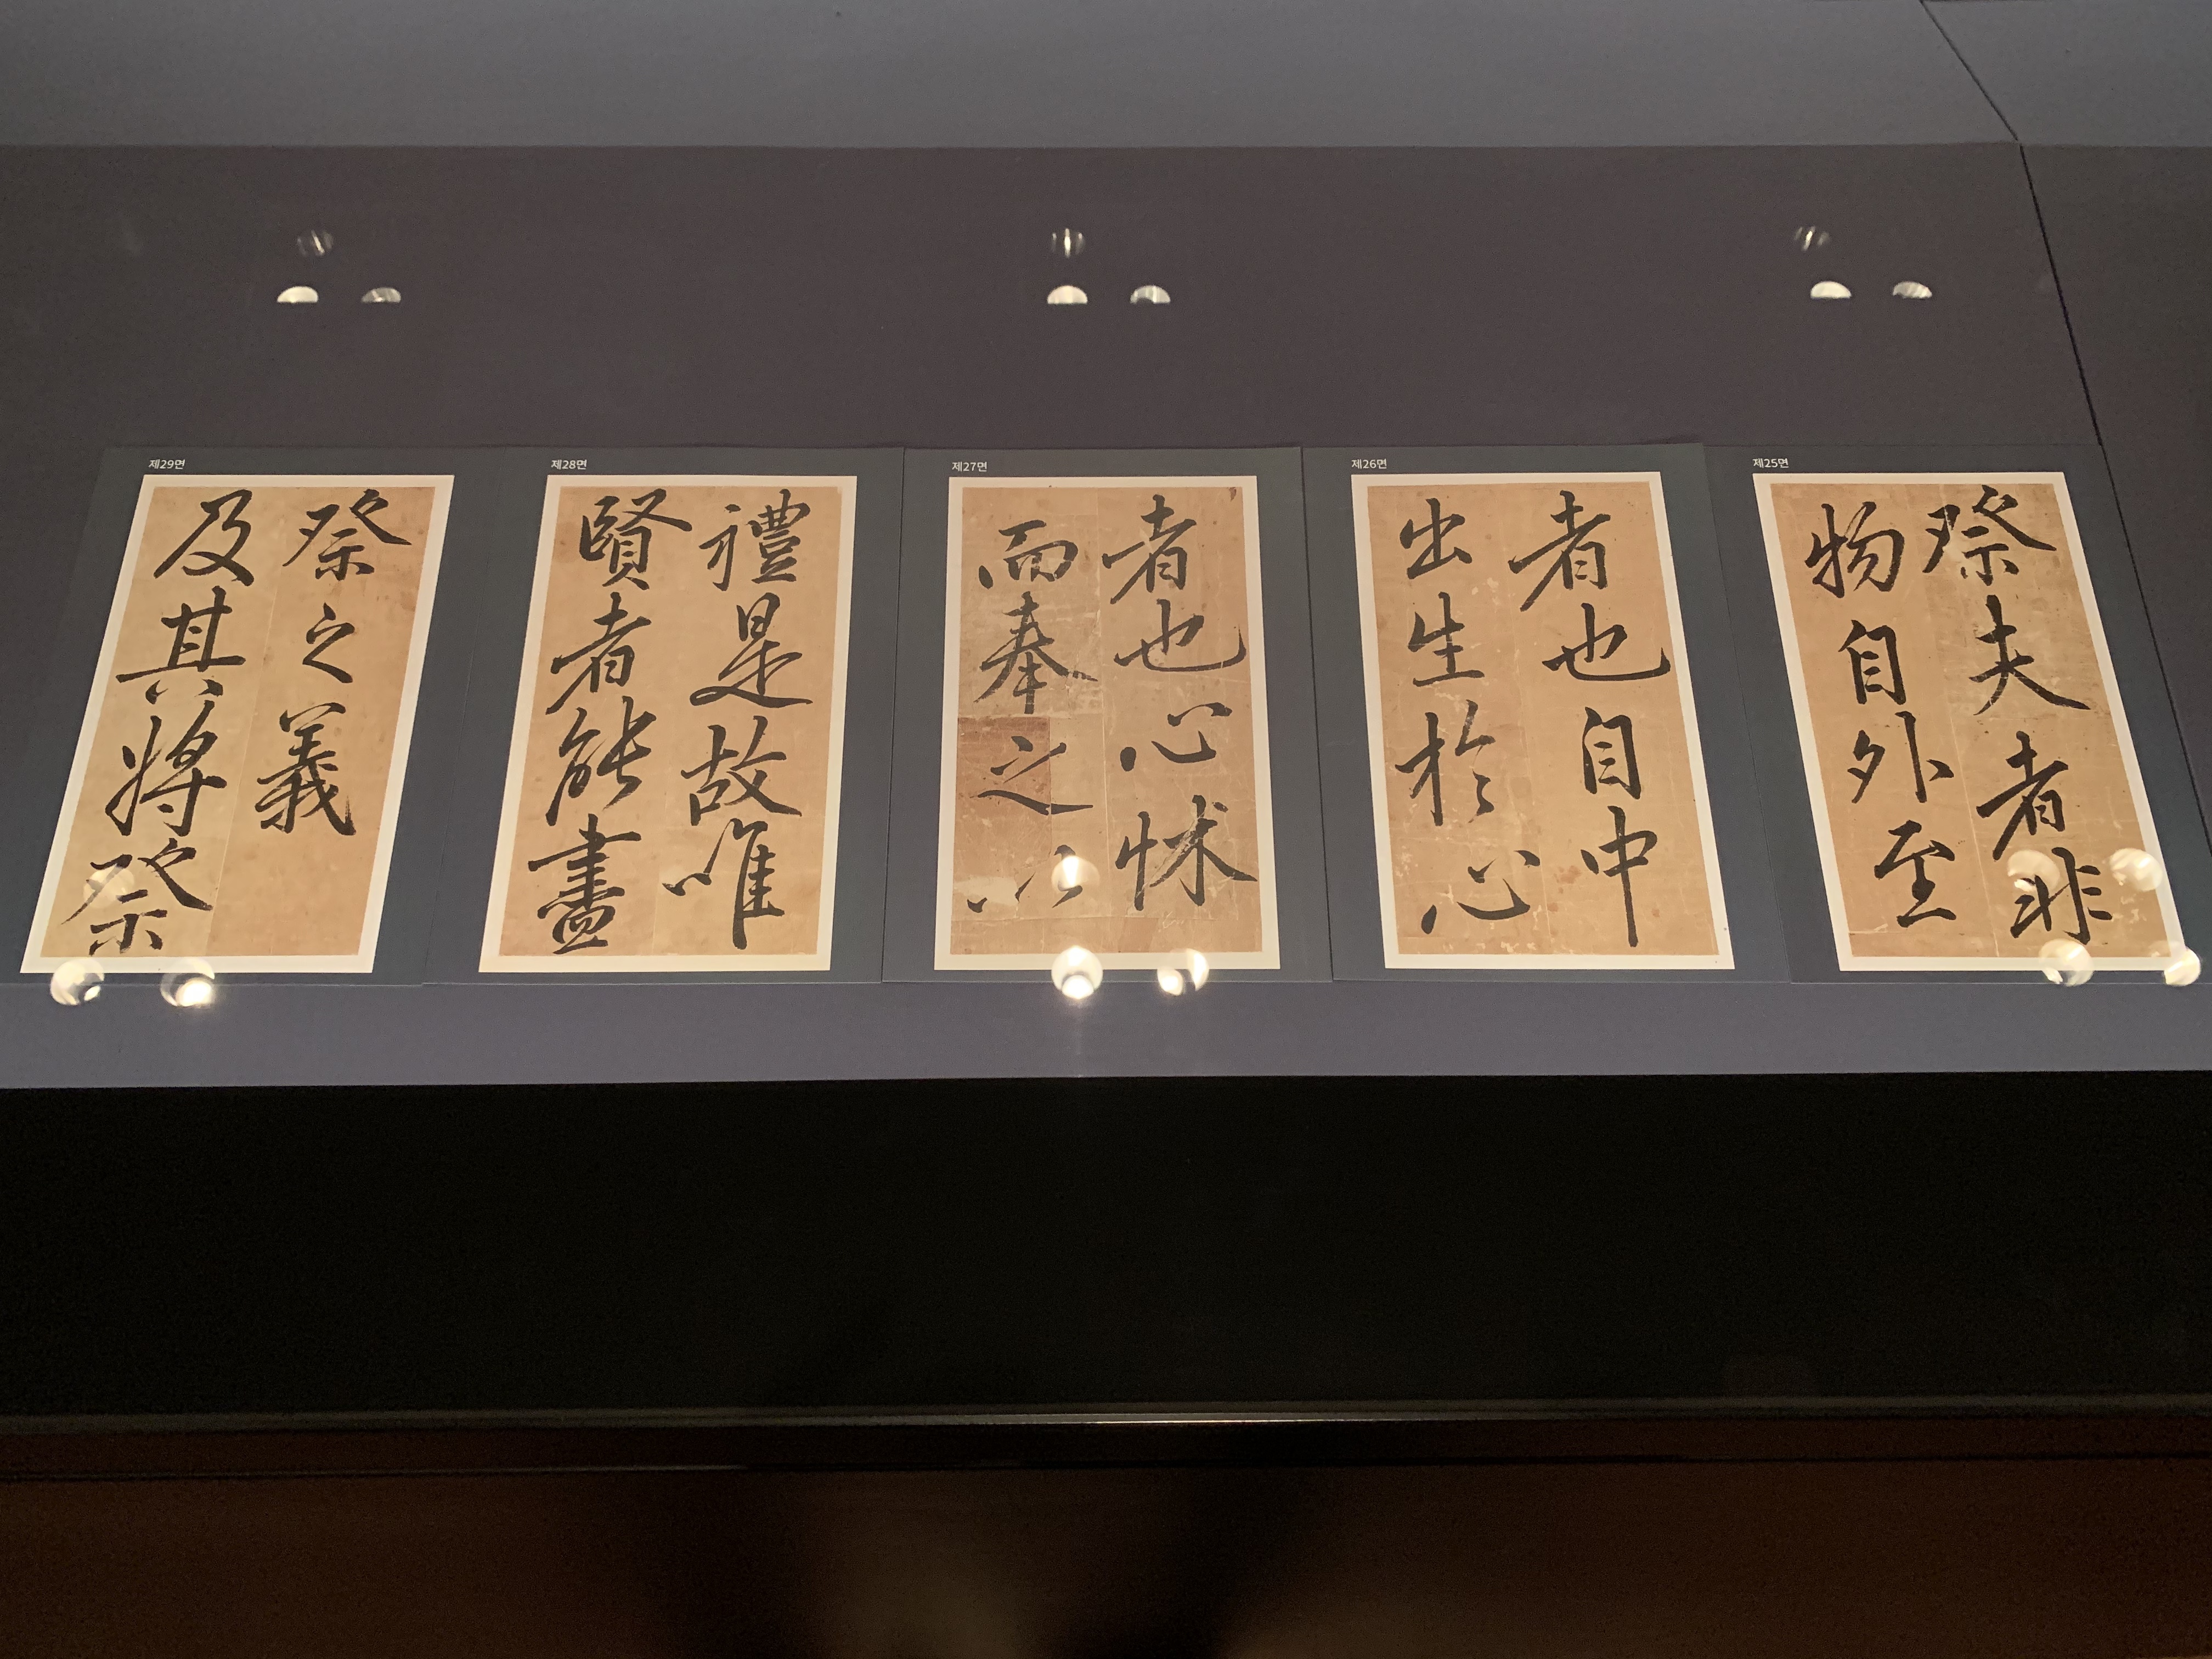 제25면
祭夫者非
物自外至
제26면
者也自中
出生於心
제27면
者也心怵
而奉之以
제28면
禮是故唯
賢者能盡
제29면
祭之義
及其將祭